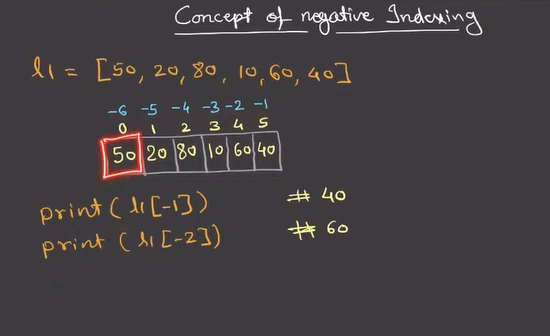 Concept of negative Indexing
l1 = [50, 20, 80, 10, 60, 40]
-6 -5 -4 -3 -2 -1
0 1 2 3 4 5
50 20 80 10 60 40
print ( l1 [-1]) # 40
print ( l1 [-2]) # 60